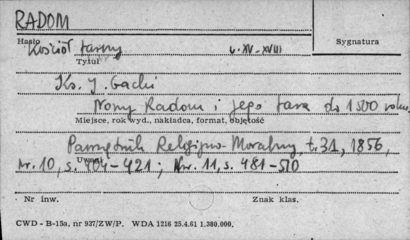 RADOM
Hasło
Kościół farny w. XV-XVIII
Sygnatura
Tytuł
Ks. J. Gacki
Nowy Radom i jego fara do 1500 roku.
Miejsce, rok wyd., nakładca, format, objętość
Pamiętnik Religijno-Moralny, t. 31, 1856,
Uwagi
nr. 10, s. 404-421; nr. 11, s. 481-510
Nr inw.
Znak klas.
CWD - B-15a, nr 937/ZW/P. WDA 1216 25.4.61 1.380.000.